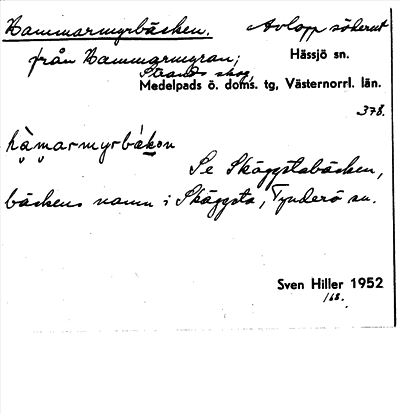 Hammarmyrbäcken. Avlopp söderut
från Hammarmyran; Hässjö sn.
Strands skog,
Medelpads ö. doms. tg, Västernorrl. län.
378.
hàmarmyrbäkən
Se Skäggstabäcken,
bäckens namn i Skäggsta, Tynderö sn.
Sven Hiller 1952
168.